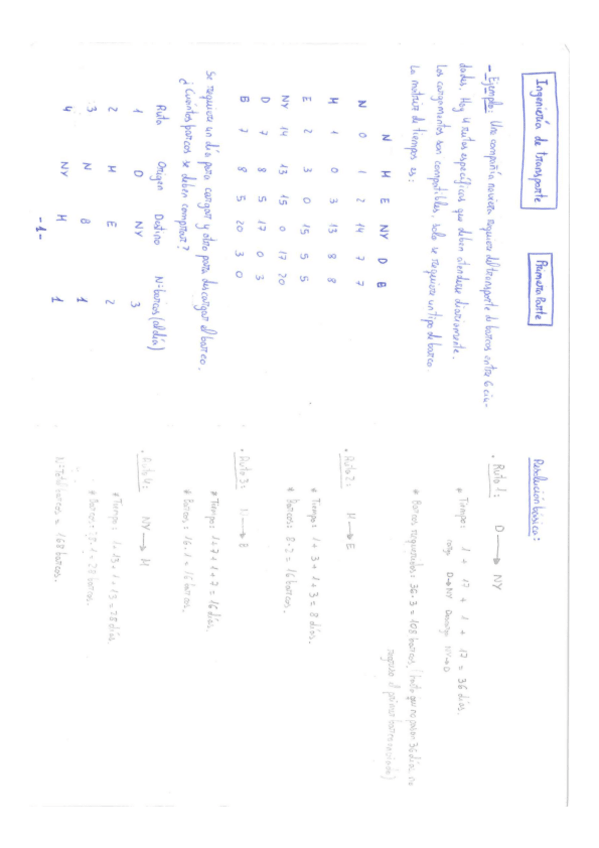 Ingeniería de transporte
Primera Parte
- Ejemplo: Una compañía naviera requiere del transporte de barcos entre 6 ciu-
dades. Hay 4 rutas específicas que deben atenderse diariamente.
Los cargamentos son compatibles, solo se requiere un tipo de barco.
La matriz de tiempos es:
N M E NY D B
N 0 1 2 14 7 7
M 1 0 3 13 8 8
E 2 3 0 15 5 5
NY 14 13 15 0 17 20
D 7 8 5 17 0 3
B 7 8 5 20 3 0
Se requiere un día para cargar y otro para descargar el barco.
¿Cuántos barcos se deben comprar?
Ruta Origen Destino Nº barcos (al día)
1 D NY 3
2 M E 2
3 N B 1
4 NY M 1
-1-
Resolución básica:
· Ruta 1: D → NY
* Tiempo: 1 + 17 + 1 + 17 = 36 días.
carga D→NY Descarga NY→D
* Barcos requeridos: 36·3 = 108 barcos. (hasta que no pasan 36 días, no
regresa el primer barco enviado)
· Ruta 2: M → E
* Tiempo: 1 + 3 + 1 + 3 = 8 días.
* Barcos: 8·2 = 16 barcos.
· Ruta 3: N → B
* Tiempo: 1+7+1+7 = 16 días.
* Barcos: 16·1 = 16 barcos.
· Ruta 4: NY → M
* Tiempo: 1+13+1+13 = 28 días.
* Barcos: 28·1 = 28 barcos.
Nº Total barcos = 168 barcos.